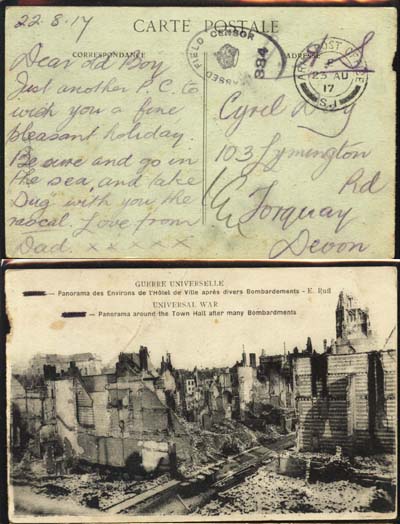 22.8.17
CARTE POSTALE
CORRESPONDANCE
ADRESSE
PASSED FIELD CENSOR
884
ARMY POST OFFICE
23 AU
17
S.1
Dear old Boy
Just another P.C. to
wish you a fine
pleasant holiday.
Be sure and go in
the sea, and take
"Dug" with you the
rascal. Love from
Dad. x x x x x
Cyril
103 Lymington
Rd
Torquay
Devon
GUERRE UNIVERSELLE
— Panorama des Environs de l'Hôtel de Ville après divers Bombardements - E. Ruff
UNIVERSAL WAR
— Panorama around the Town Hall after many Bombardments